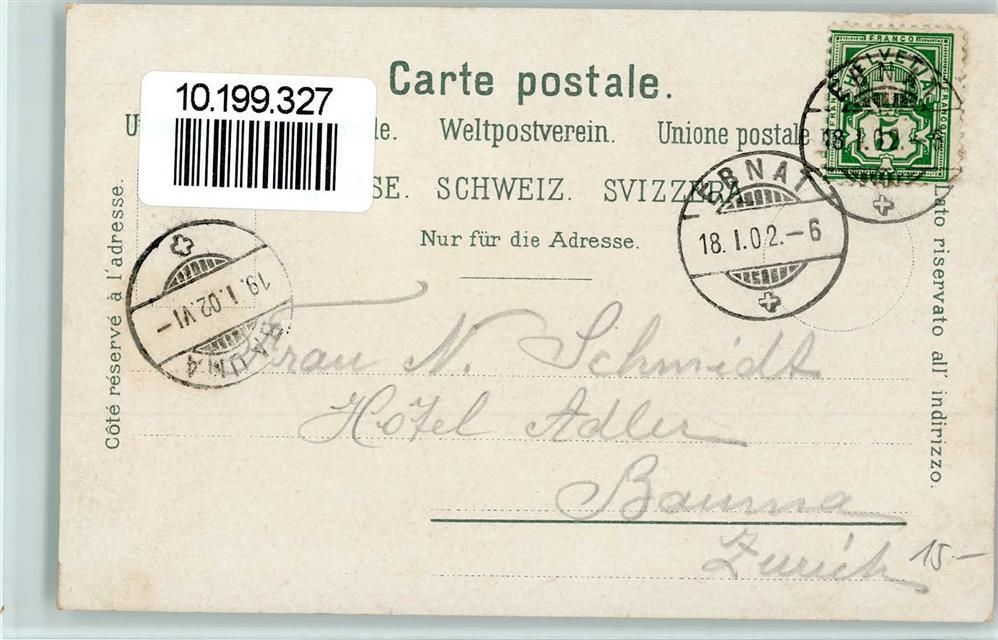 Carte postale.
10.199.327
U le. Weltpostverein. Unione postale
SE. SCHWEIZ. SVIZZERA
Nur für die Adresse.
FRANCO
HELVETIA
5
18.I.02.-6
EBNAT
18.I.02.-6
19.I.02.VI-
BAUMA
Côté réservé à l'adresse.
Lato riservato all' indirizzo.
Frau N. Schmidt
Hôtel Adler
Bauma
Zürich
15.-